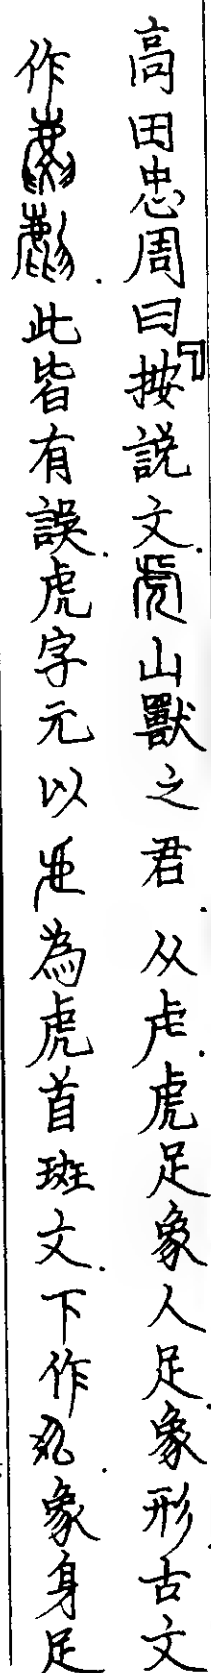 高田忠周曰「按說文.虎山獸之君.从虍.虎足象人足.象形古文
作.此皆有誤.虎字元以虍為虎首斑文.下作.象身足